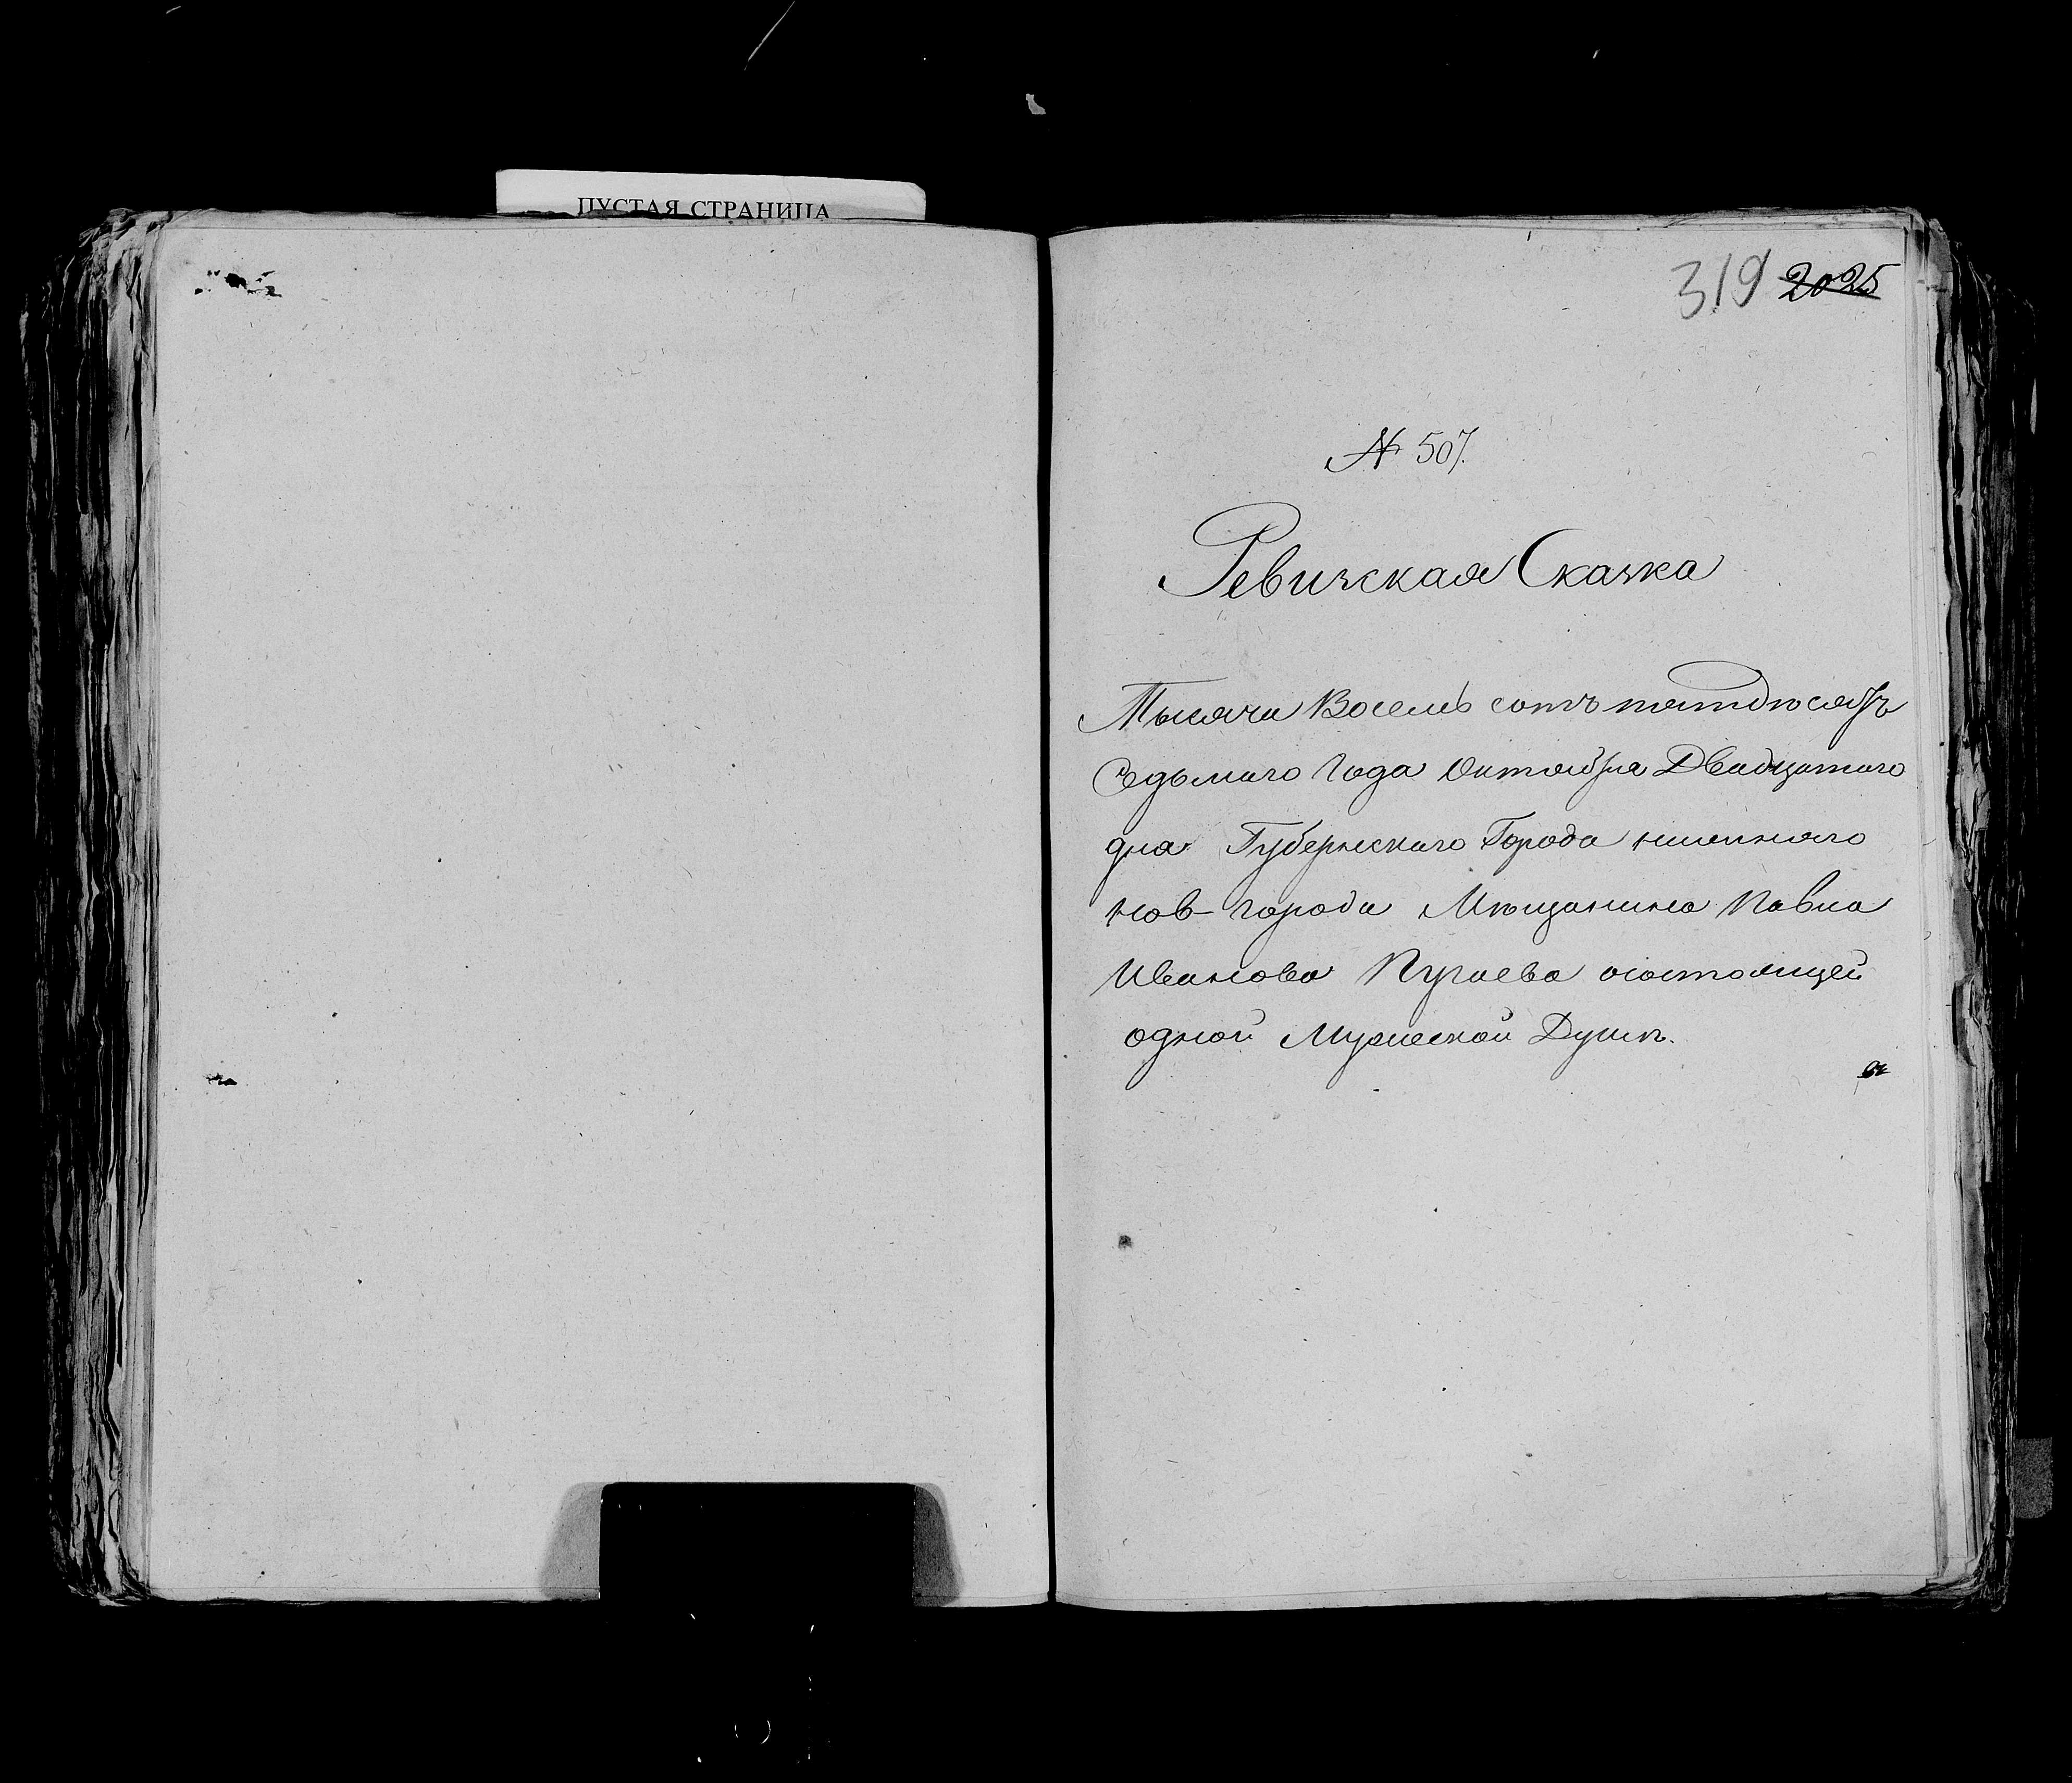 ПУСТАЯ СТРАНИЦА
319 2025
№ 507.
Ревижская Сказка
Тысяча Восемь сотъ пятидѣсятъ
Седьмаго Года Октября Двадцатаго
дня Губернскаго Города нижняго
нов-города Мѣщанина Павла
Иванова Пугаева состоящей
одной Мужеской Душѣ.